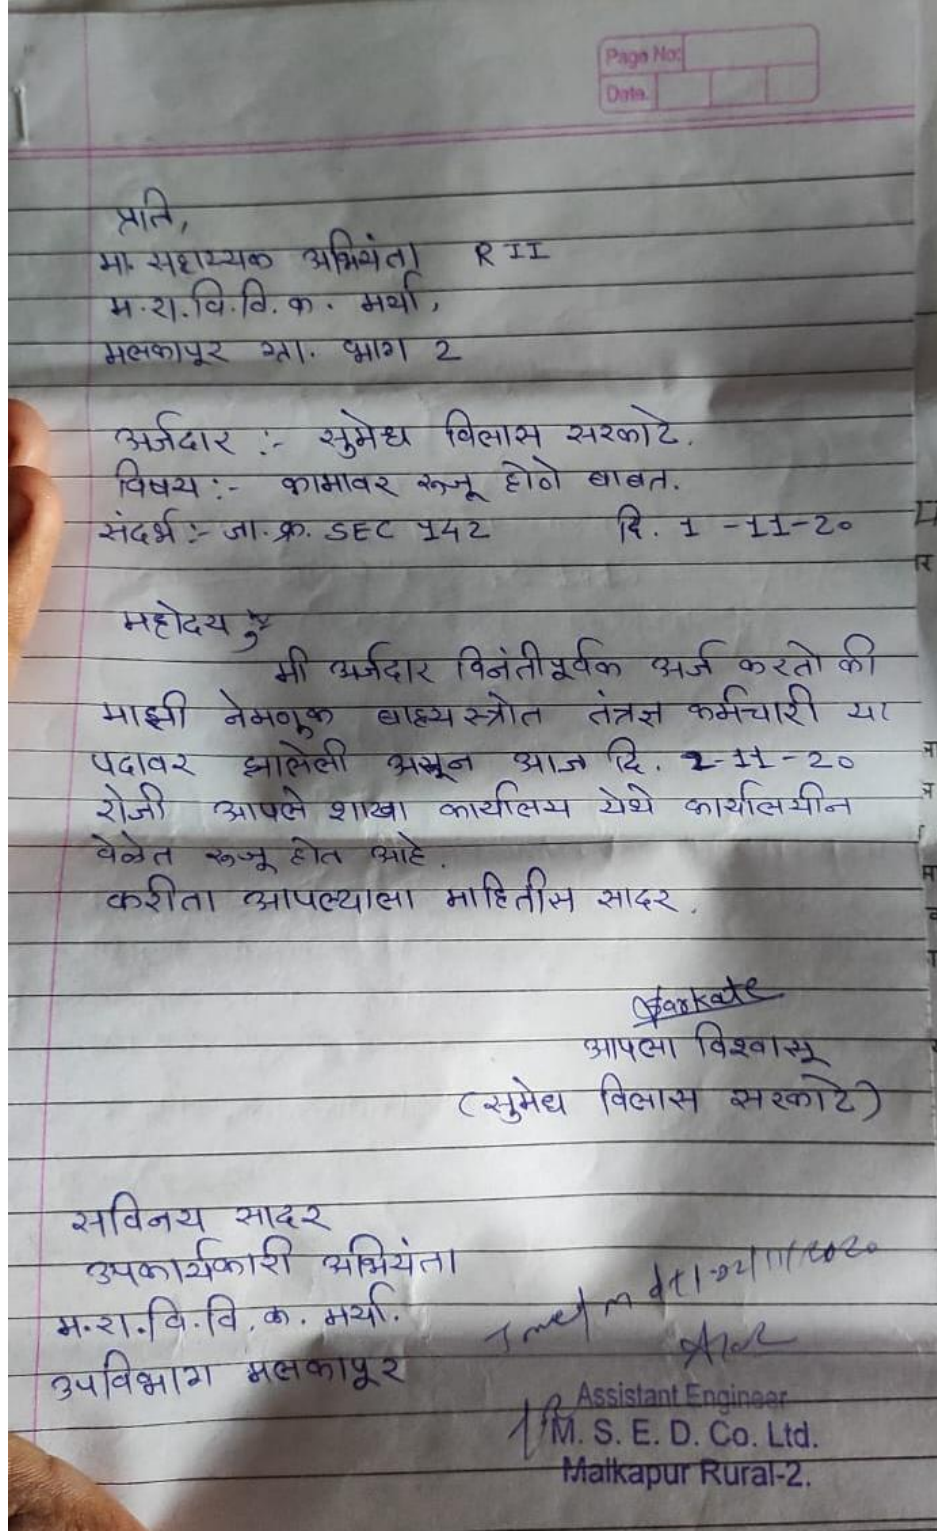 Page No:
Date.
प्रति,
मा. सहाय्यक अभियंता R II
म.रा.वि.वि.क. मर्या,
मलकापूर ग्रा. भाग 2
अर्जदार :- सुमेध विलास सरकाटे.
विषय :- कामावर रूजू होणे बाबत.
संदर्भ :- जा.क्र. SEC 142 दि. 1-11-20
महोदय,
मी अर्जदार विनंतीपूर्वक अर्ज करतो की
माझी नेमणूक बाह्यस्त्रोत तंत्रज्ञ कर्मचारी या
पदावर झालेली असून आज दि. 2-11-20
रोजी आपले शाखा कार्यालय येथे कार्यालयीन
वेळेत रूजू होत आहे.
करीता आपल्याला माहितीस सादर.
Sarkate
आपला विश्वासू
(सुमेध विलास सरकाटे)
सविनय सादर
उपकार्यकारी अभियंता
म.रा.वि.वि.क. मर्या.
उपविभाग मलकापूर
02/11/2020
Assistant Engineer
M. S. E. D. Co. Ltd.
Malkapur Rural-2.